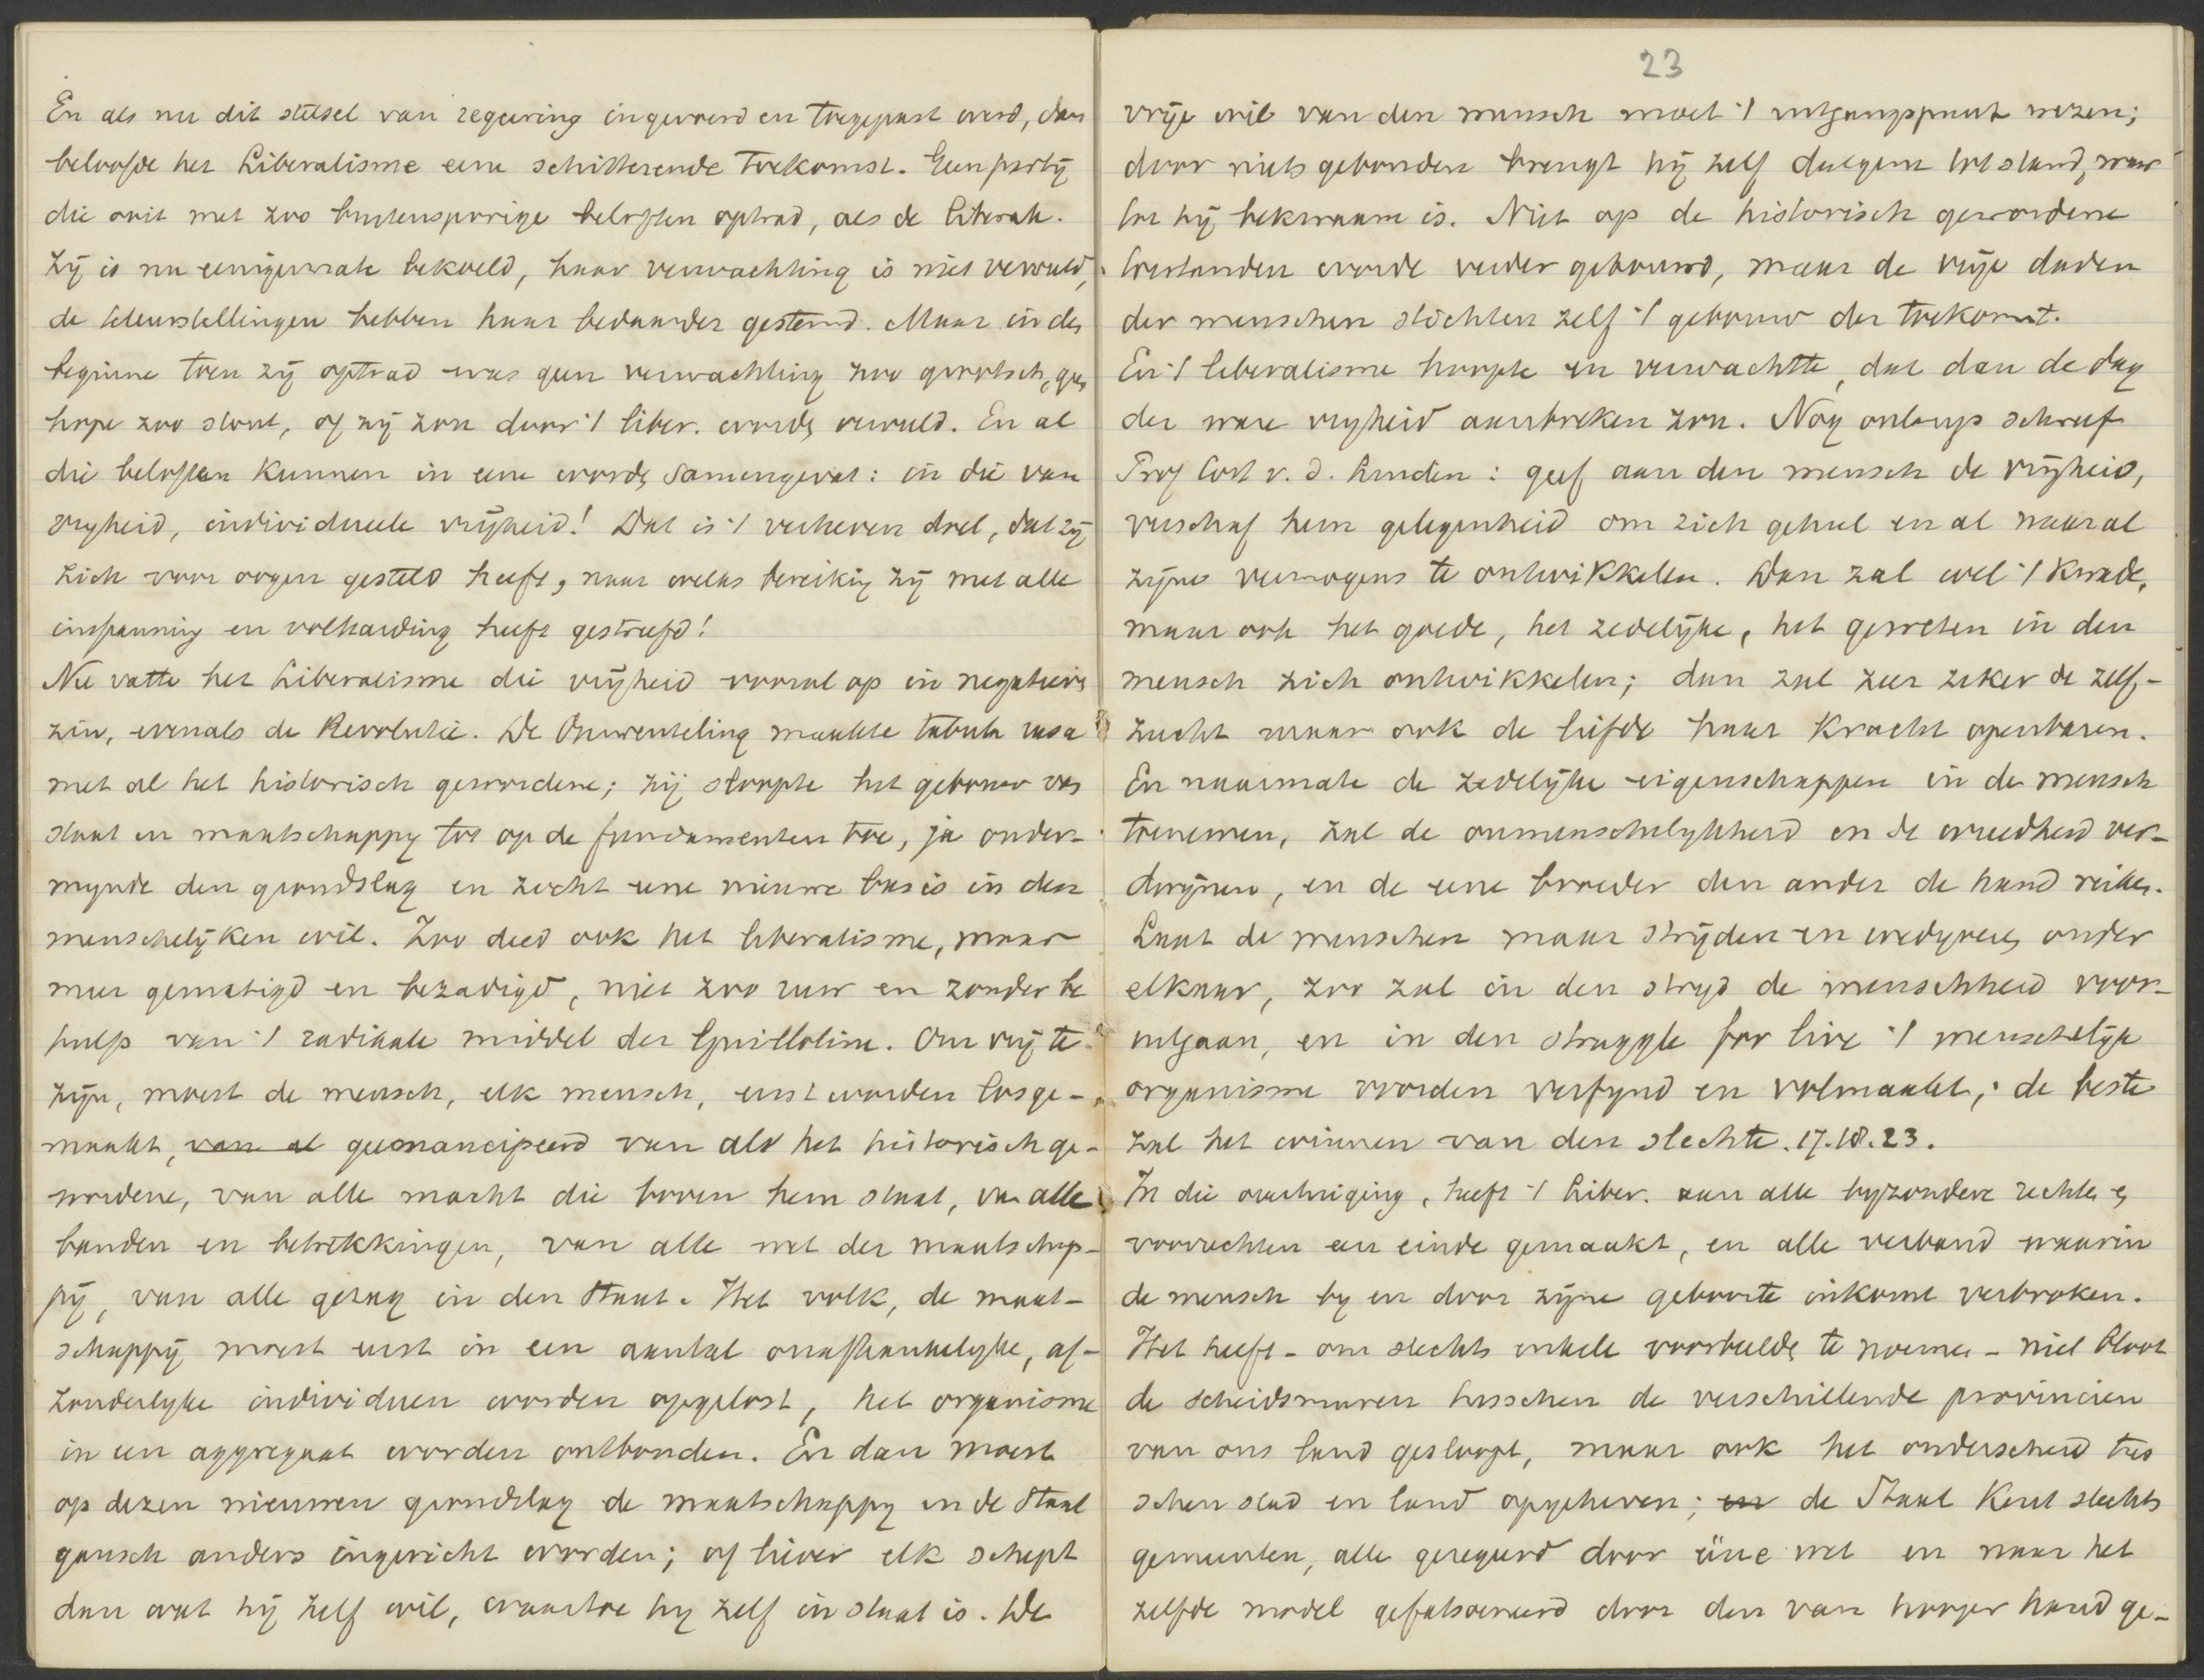 En als nu dit stelsel van regeering ingevoerd en toegepast werd, dan
beloofde het Liberalisme eene schitterende toekomst. Geen partij
die ooit met zoo buitensporige beloften optrad, als de liberale.
Zij is nu eenigermate bekoeld, haar verwachting is niet vervuld,
de teleurstellingen hebben haar bedaarder gestemd. Maar in den
beginne toen zij optrad was geen verwachting zoo grootsch, geen
hope zoo stout, of zij zou door 't liber. worden vervuld. En al
die beloften kunnen in eene worden samengevat: in die van
vryheid, individueele vrijheid! Dat is 't verheven doel, dat zij
zich voor oogen gesteld heeft, naar welks bereiking zij met alle
inspanning en volharding heeft gestreefd!
Nu vatte het Liberalisme die vrijheid vooral op in negatieven
zin, evenals de Revolutie. De Omwenteling maakte tabula rasa
met al het historisch gewordene; zij sloopte het gebouw van
staat en maatschappy tot op de fundamenten toe, ja onder-
mynde den grondslag en zocht eene nieuwe basis in den
menschelijken wil. Zoo deed ook het liberalisme, maar
meer gematigd en bezadigd, niet zoo ruw en zonder be
hulp van 't radikale middel der Guillotine. Om vrij te
zijn, moest de mensch, elk mensch, eerst worden losge-
maakt, van al geemancipeerd van als het historisch ge-
wordene, van alle macht die boven hem staat, van alle
banden en betrekkingen, van alle wet der maatschap-
pij, van alle gezag in den Staat. Het volk, de maat-
schappij moest eerst in een aantal onafhankelyke, af-
zonderlyke individuen worden opgelost, het organisme
in een aggregaat worden ontbonden. En dan moest
op dezen nieuwen grondslag de maatschappy en de Staat
gansch anders ingericht worden; of liever elk schept
dan wat hij zelf wil, waartoe hy zelf in staat is. De
23
vrije wil van den mensch moet 't uitgangspunt wezen;
door niets gebonden brengt hij zelf datgene tot stand, waar
toe hij bekwaam is. Niet op de historisch gewordene
toestanden worde verder gebouwd, maar de vrije daden
der menschen stichten zelf 't gebouw der toekomst.
En 't liberalisme hoopte en verwachtte, dat dan de dag
der ware vryheid aanbreken zou. Nog onlangs schreef
Prof Cort v. d. Linden: geef aan den mensch de vrijheid,
verschaf hem gelegenheid om zich geheel en al naar al
zijne vermogens te ontwikkelen. Dan zal wel 't kwade,
maar ook het goede, het zedelijke, het geweten in den
mensch zich ontwikkelen; dan zal zeer zeker de zelf-
zucht maar ook de liefde haar kracht openbaren.
En naarmate de zedelijke eigenschappen in de mensch
toenemen, zal de onmenschelykheid en de wreedheid ver-
dwijnen, en de eene broeder den ander de hand reiken.
Laat de menschen maar strijden en wedyveren onder
elkaar, zoo zal in den stryd de menschheid voor-
uitgaan, en in den struggle for live 't menschelijk
organisme worden verfynd en volmaakt; de beste
zal het winnen van den slechte. 17.18.23.
In die overtuiging, heeft 't Liber. aan alle byzondere rechten en
voorrechten een einde gemaakt, en alle verband waarin
de mensch by en door zijne geboorte inkomt verbroken.
Het heeft - om slechts enkele voorbeelden te noemen - niet bloot
de scheidsmuren tusschen de verschillende provincien
van ons land gesloopt, maar ook het onderscheid tus
schen stad en land opgeheven; en de Staat kent slechts
gemeenten, alle geregeerd door ééne wet en naar het
zelfde model gefatsoeneerd door den van hooger hand ge-